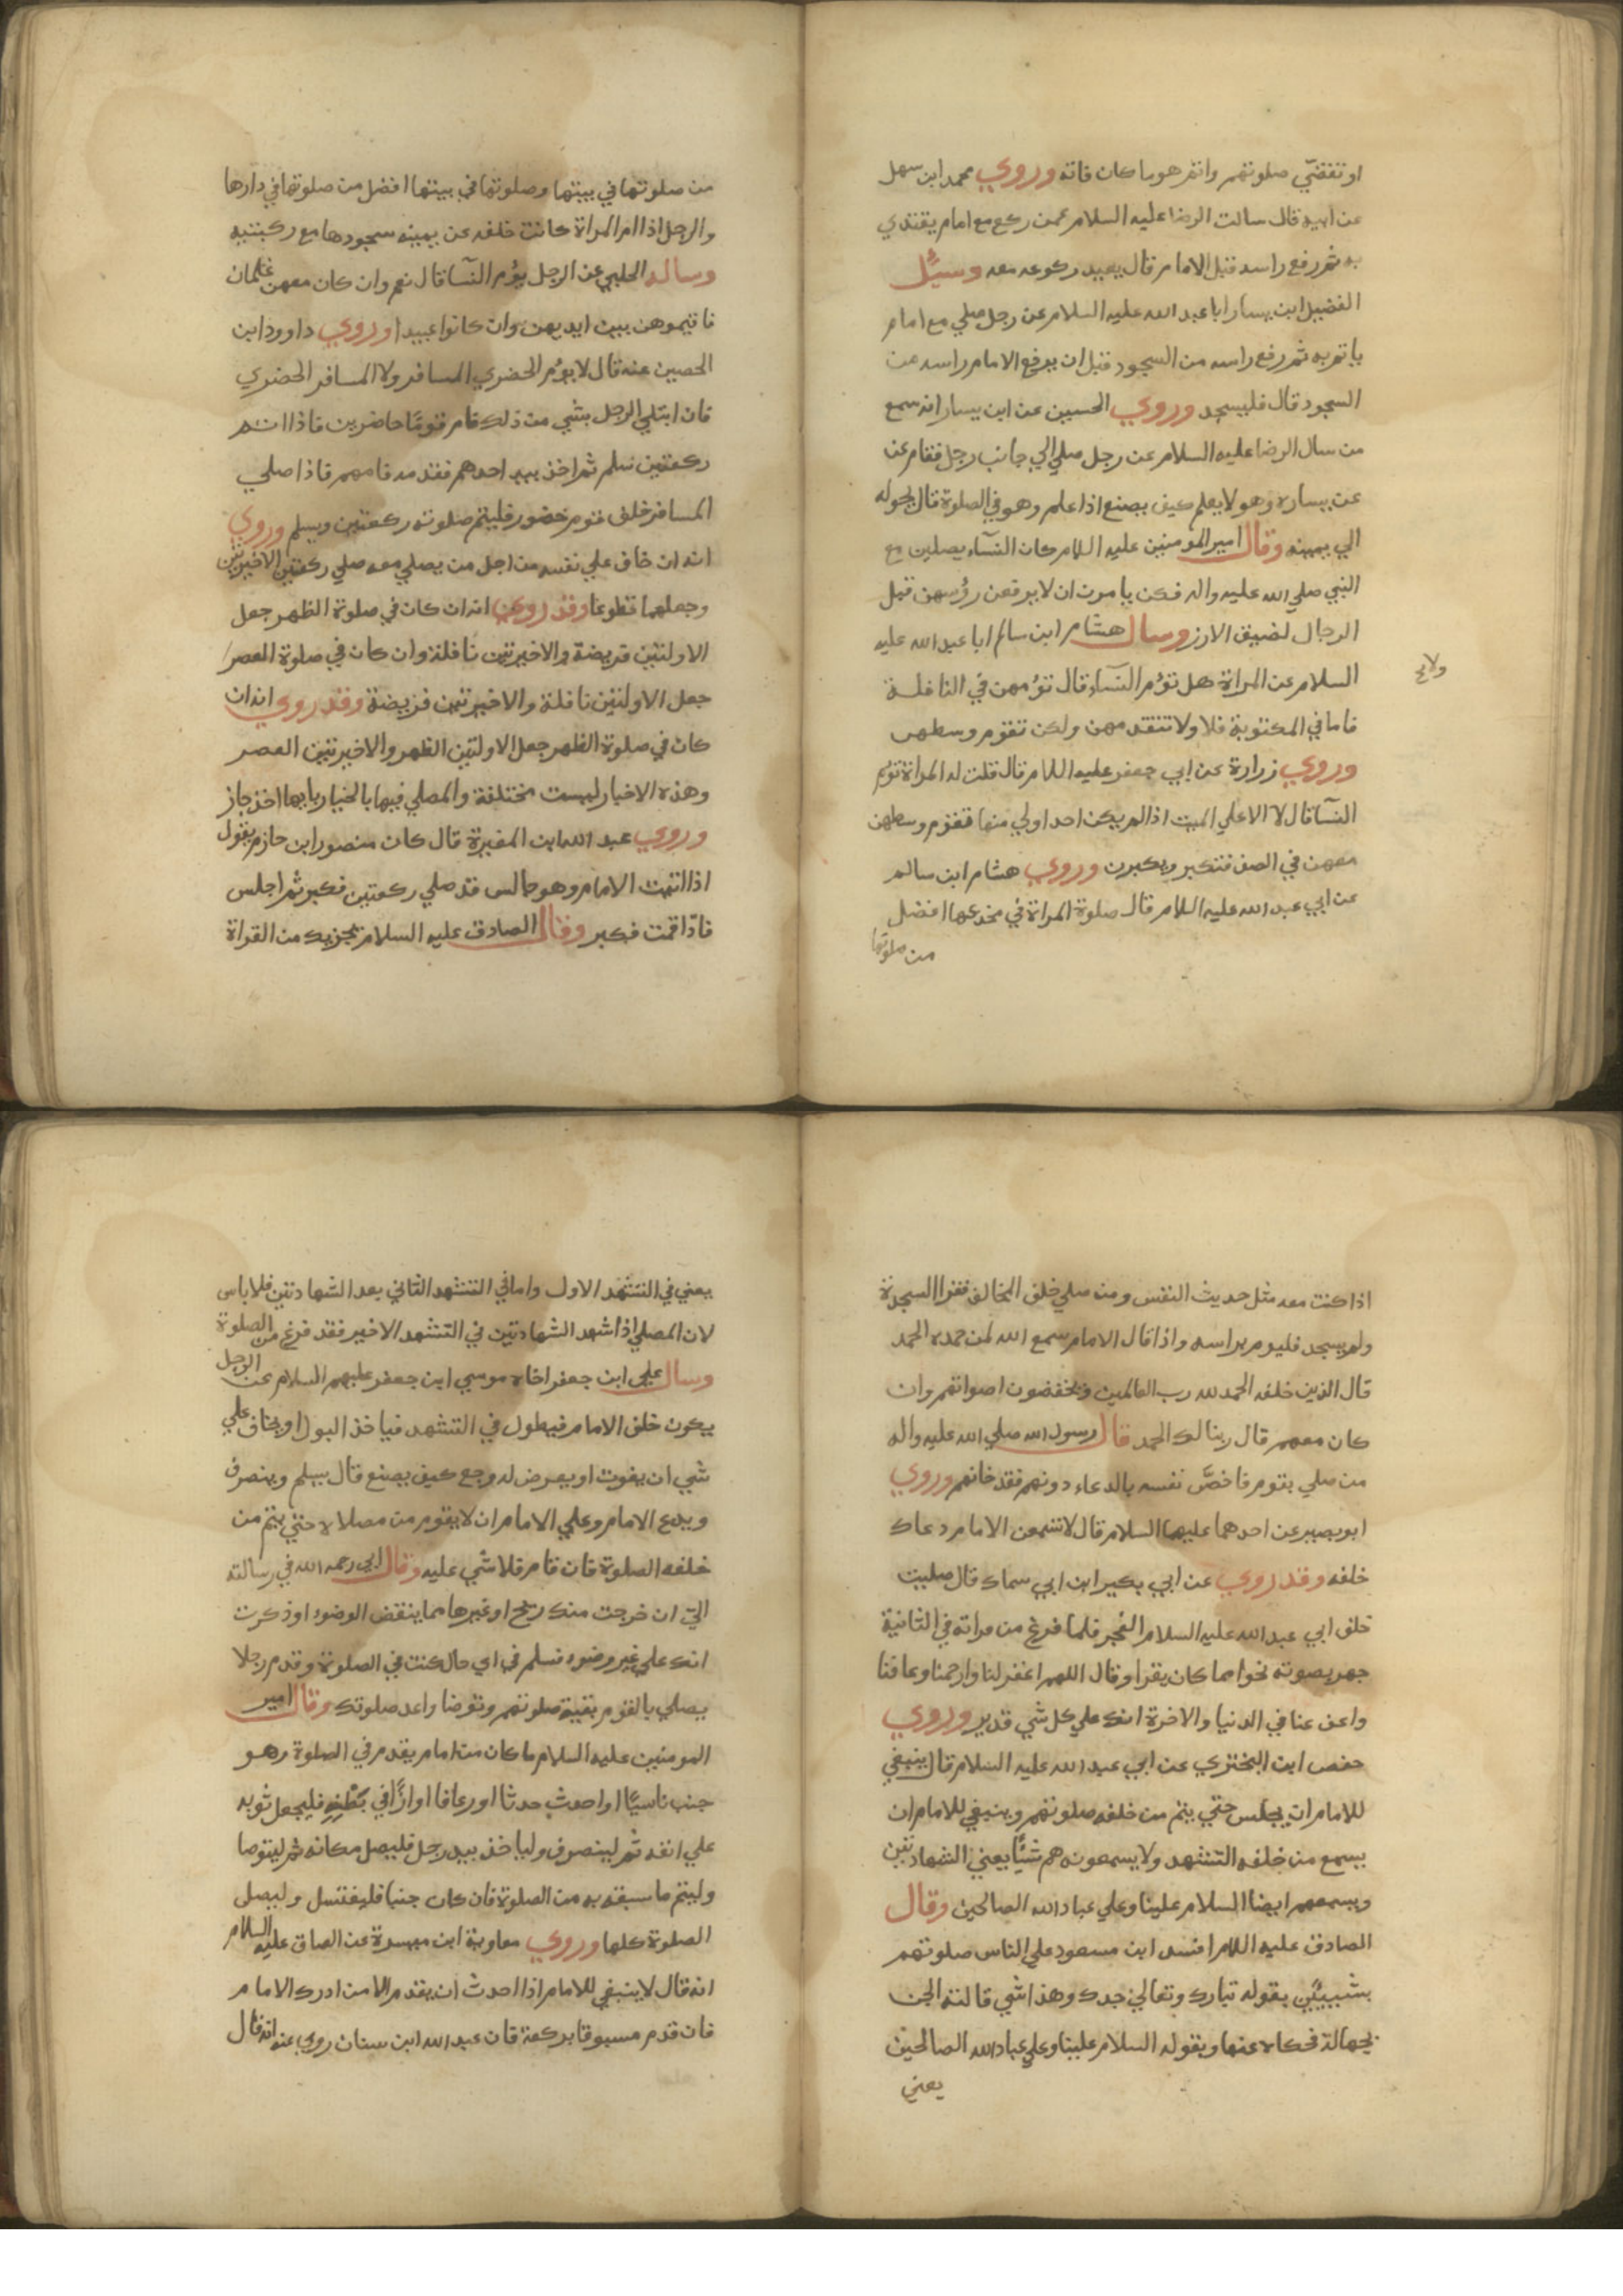 او تنقضي صلوتهم واتم هو ما كان فاته وروي محمد ابن سهل
عن ابيه قال سالت الرضا عليه السلام عمن ركع مع امام يقتدي
به ثم رفع راسه قبل الامام قال يعيد ركوعه معه وسئل
الفضيل ابن يسار ابا عبد الله عليه السلام عن رجل صلي مع امام
ياتم به ثم رفع راسه من السجود قبل ان يرفع الامام راسه من
السجود قال فليسجد وروي الحسين عن ابن يسار انه سمع
من سال الرضا عليه السلام عن رجل صلي الي جانب رجل فقام عن
عن يساره وهو لا يعلم كيف يصنع اذا علم وهو في الصلوة قال يحوله
الي يمينه وقال امير المومنين عليه اللام كان النسآء يصلين مع
النبي صلي الله عليه واله فكن يامرن ان لا يرفعن رؤسهن قبل
الرجال لضيق الازر وسال هشام ابن سالم ابا عبد الله عليه
السلام عن المراة هل تؤم النسآء قال تؤمهن في النافلة
فاما في المكتوبة فلا ولا تتقدمهن ولكن تقوم وسطهن
وروي زرارة عن ابي جعفر عليه اللام قال قلت له المراة تؤم
النسآ قال لا الا علي الميت اذا لم يكن احد اولي منها فتقوم وسطهن
معهن في الصف فتكبر ويكبرن وروي هشام ابن سالم
عن ابي عبد الله عليه اللام قال صلوة المراة في مخدعها افضل
من صلوتها
من صلوتها في بيتها وصلوتها في بيتها افضل من صلوتها في دارها
والرجل اذا ام المراة كانت خلفه عن يمينه سجودها مع ركبتيه
وساله الحلبي عن الرجل يؤم النسآ قال نعم وان كان معهن غلمان
فاقيموهن بين ايديهن وان كانوا عبيدا وروي داوود ابن
الحصين عنه قال لا يؤم الحضري المسافر ولا المسافر الحضري
فان ابتلي الرجل بشي من ذلك فام قوما حاضرين فاذا اتم
ركعتين سلم ثم اخذ بيد احدهم فقدمه فامهم فاذا صلي
المسافر خلف قوم حضور فليتم صلوته ركعتين ويسلم وروي
انه ان خاف علي نفسه من اجل من يصلي معه صلي ركعتين الاخيرتين
وجعلهما تطوعا وقد روي انه ان كان في صلوة الظهر جعل
الاولتين فريضة والاخيرتين نافلة وان كان في صلوة العصر
جعل الاولتين نافلة والاخيرتين فريضة وقد روي انه ان
كان في صلوة الظهر جعل الاولتين الظهر والاخيرتين العصر
وهذه الاخبار ليست مختلفة والمصلي فيها بالخيار بايها اخذ جاز
وروي عبد الله ابن المغيرة قال كان منصور ابن حازم يقول
اذا اتيت الامام وهو جالس قد صلي ركعتين فكبر ثم اجلس
فاذا قمت فكبر وقال الصادق عليه السلام يجزيك من القراة
اذا كنت معه مثل حديث النفس ومن صلي خلف المخالف فقرا السجدة
ولم يسجد فليوم براسه واذا قال الامام سمع الله لمن حمده الحمد
قال الذين خلفه الحمد لله رب العالمين ويخفضون اصواتهم وان
كان معهم قال ربنا لك الحمد قال رسول الله صلي الله عليه واله
من صلي بقوم فاخصّ نفسه بالدعاء دونهم فقد خانهم وروي
ابو بصير عن احدهما عليهما السلام قال لا تسمعن الامام دعاك
خلفه وقد روي عن ابي بكير ابن ابي سماك قال صليت
خلف ابي عبد الله عليه السلام الفجر فلما فرغ من قراته في الثانية
جهر بصوته نحوا مما كان يقرا وقال اللهم اغفر لنا وارحمنا وعافنا
واعف عنا في الدنيا والاخرة انك علي كل شي قدير وروي
حفص ابن البختري عن ابي عبد الله عليه السلام قال ينبغي
للامام ان يجلس حتي يتم من خلفه صلوتهم وينبغي للامام ان
يسمع من خلفه التشهد ولا يسمعونه هم شيئًا يعني الشهادتين
ويسمعهم ايضا السلام علينا وعلي عباد الله الصالحين وقال
الصادق عليه اللام افسد ابن مسعود علي الناس صلوتهم
بشيئين بقوله تبارك وتعالي جدك وهذا شي قالته الجن
بجهالة فحكاه عنها وبقوله السلام علينا وعلي عباد الله الصالحين
يعني
يعني في التشهد الاول واما في التشهد الثاني بعد الشهادتين فلا باس
لان المصلي اذا شهد الشهادتين في التشهد الاخير فقد فرغ من الصلوة
وسال علي ابن جعفر اخاه موسي ابن جعفر عليهم السلام عن الرجل
يكون خلف الامام فيطول في التشهد فياخذ البول او يخاف علي
شي ان يفوت او يعرض له وجع كيف يصنع قال يسلم وينصرف
ويدع الامام وعلي الامام ان لا يقوم من مصلاه حتي يتم من
خلفه الصلوة فان قام فلا شي عليه وقال ابي رحمه الله في رسالته
اليّ ان خرجت منك ريح او غيرها مما ينقض الوضوء او ذكرت
انك علي غير وضوء فسلم في اي حال كنت في الصلوة وقدم رجلا
يصلي بالقوم بقية صلوتهم وتوضا واعد صلوتك وقال امير
المومنين عليه السلام ما كان من امام يقدم في الصلوة وهو
جنب ناسيًا او احدث حدثا او رعافا او ازًّا في بطنه فليجعل ثوبه
علي انفه ثم لينصرف ولياخذ بيد رجل فليصل مكانه ثم ليتوضا
وليتم ما سبقه به من الصلوة فان كان جنبا فليغتسل وليصلي
الصلوة كلها وروي معاوية ابن ميسرة عن الصاق عليه السلام
انه قال لا ينبغي للامام اذا احدث ان يقدم الا من ادرك الامام
فان قدم مسبوقا بركعة فان عبد الله ابن سنان روي عنه انه قال